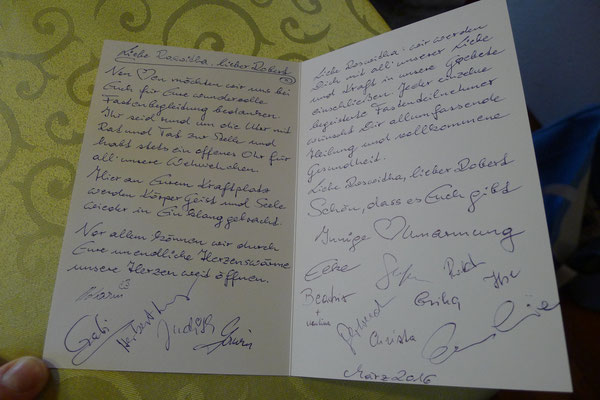 Liebe Roswitha, lieber Robert
Von ♡en möchten wir uns bei
Euch für Eure wundervolle
Fastenbegleitung bedanken.
Ihr seid rund um die Uhr mit
Rat und Tat zur Stelle und
habt stets ein offenes Ohr für
all unsere Wehwehchen.
Hier an Eurem Kraftplatz
werden Körper Geist und Seele
wieder in Einklang gebracht.
Vor allem können wir durch
Eure unendliche Herzenswärme
unsere Herzen weit öffnen.
Gabi
Judith
Liebe Roswitha: wir werden
Dich mit all' unserer Liebe
und Kraft in unsere Gebete
einschließen. Jeder einzelne
begeisterte Fastenteilnehmer
wünscht Dir allumfassende
Heilung und vollkommene
Gesundheit.
Liebe Roswitha, lieber Robert
Schön, dass es Euch gibt
Innige ♡ Umarmung
Eure
Beatrix
+
Erika
Christa
März 2016